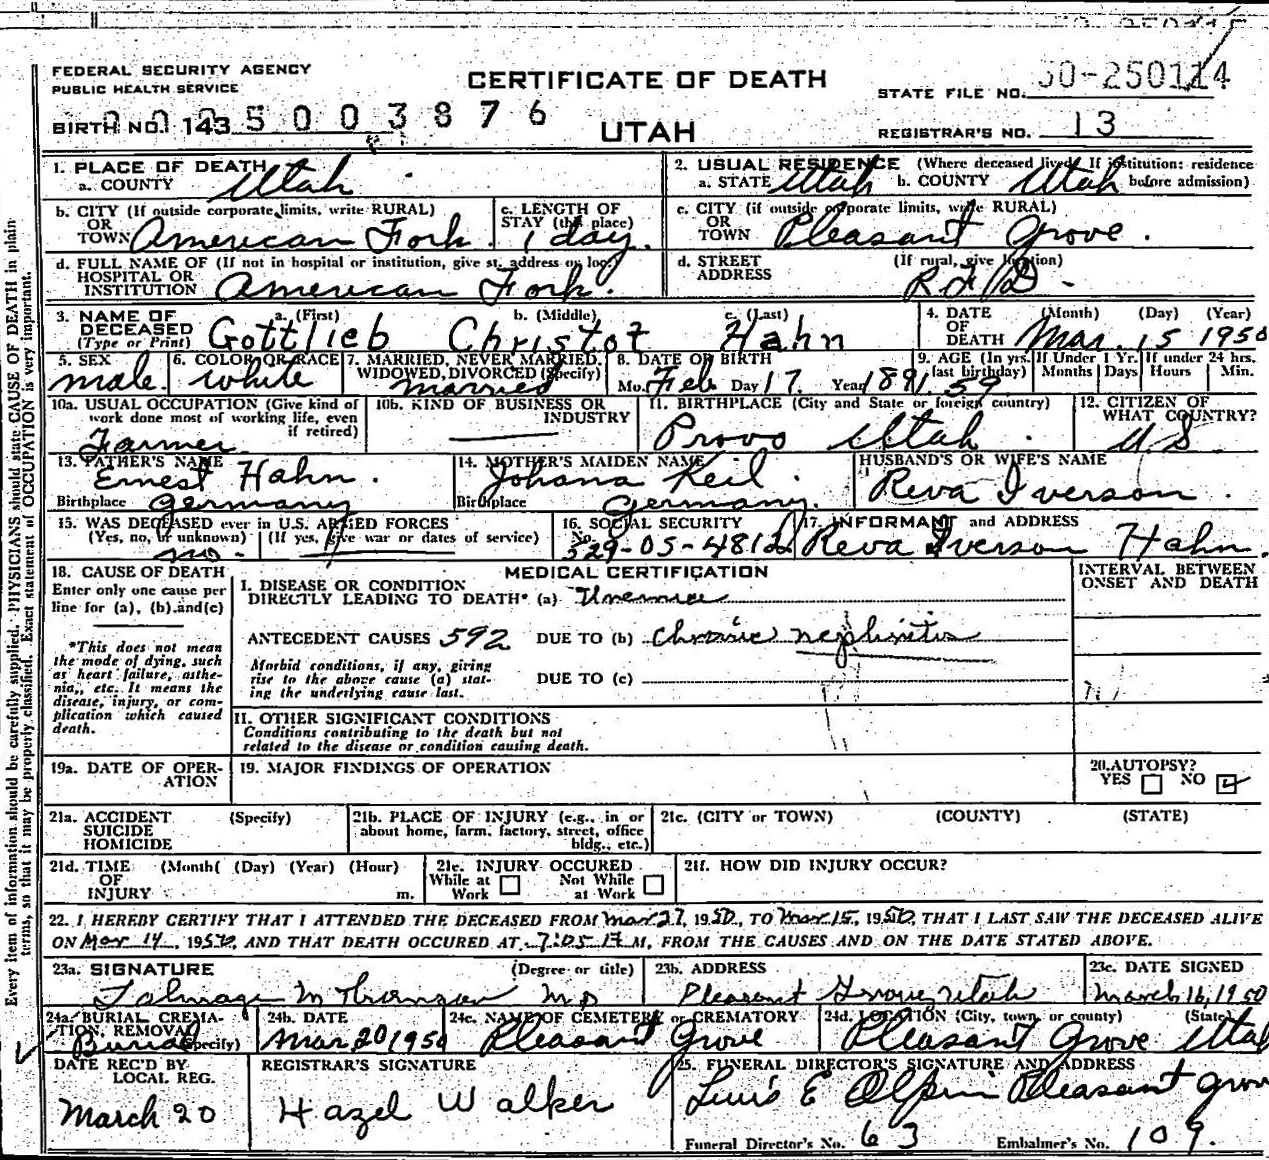 FEDERAL SECURITY AGENCY
PUBLIC HEALTH SERVICE
CERTIFICATE OF DEATH
UTAH
STATE FILE NO. 50-250114
BIRTH NO. 143 5003876
REGISTRAR'S NO. 13
1. PLACE OF DEATH
a. COUNTY Utah
2. USUAL RESIDENCE (Where deceased lived. If institution: residence before admission)
a. STATE Utah b. COUNTY Utah
b. CITY (If outside corporate limits, write RURAL)
OR TOWN American Fork
c. LENGTH OF STAY (this place) 1 day.
c. CITY (if outside corporate limits, write RURAL)
OR TOWN Pleasant Grove.
d. FULL NAME OF (If not in hospital or institution, give st. address or loc.)
HOSPITAL OR INSTITUTION American Fork.
d. STREET ADDRESS (If rural, give location)
R F D -
3. NAME OF DECEASED (Type or Print)
a. (First) b. (Middle) c. (Last)
Gottlieb Christof Hahn
4. DATE OF DEATH (Month) (Day) (Year)
Mar. 15 1950
5. SEX male.
6. COLOR OR RACE white
7. MARRIED, NEVER MARRIED, WIDOWED, DIVORCED (Specify) married
8. DATE OF BIRTH
Mo. Feb Day 17. Year 1891.
9. AGE (In yrs. last birthday) 59
If Under 1 Yr. Months Days
If under 24 hrs. Hours Min.
10a. USUAL OCCUPATION (Give kind of work done most of working life, even if retired)
Farmer
10b. KIND OF BUSINESS OR INDUSTRY
11. BIRTHPLACE (City and State or foreign country)
Provo Utah.
12. CITIZEN OF WHAT COUNTRY?
U.S.
13. FATHER'S NAME
Ernest Hahn.
Birthplace Germany
14. MOTHER'S MAIDEN NAME
Johana Keil.
Birthplace Germany.
HUSBAND'S OR WIFE'S NAME
Reva Iverson.
15. WAS DECEASED ever in U.S. ARMED FORCES
(Yes, no, or unknown) (If yes, give war or dates of service)
no.
16. SOCIAL SECURITY
No. 529-05-4812
17. INFORMANT and ADDRESS
Reva Iverson Hahn.
18. CAUSE OF DEATH
Enter only one cause per line for (a), (b) and (c)
*This does not mean the mode of dying, such as heart failure, asthenia, etc. It means the disease, injury, or complication which caused death.
MEDICAL CERTIFICATION
INTERVAL BETWEEN ONSET AND DEATH
I. DISEASE OR CONDITION
DIRECTLY LEADING TO DEATH* (a) Uremia
ANTECEDENT CAUSES 592 DUE TO (b) chronic nephritis
Morbid conditions, if any, giving rise to the above cause (a) stating the underlying cause last.
DUE TO (c)
II. OTHER SIGNIFICANT CONDITIONS
Conditions contributing to the death but not
related to the disease or condition causing death.
19a. DATE OF OPERATION
19. MAJOR FINDINGS OF OPERATION
20. AUTOPSY?
YES NO
21a. ACCIDENT SUICIDE HOMICIDE (Specify)
21b. PLACE OF INJURY (e.g., in or about home, farm, factory, street, office bldg., etc.)
21c. (CITY or TOWN) (COUNTY) (STATE)
21d. TIME OF INJURY (Month( (Day) (Year) (Hour) m.
21e. INJURY OCCURED
While at Work Not While at Work
21f. HOW DID INJURY OCCUR?
22. I HEREBY CERTIFY THAT I ATTENDED THE DECEASED FROM Mar 27, 1950, TO Mar 15, 1950, THAT I LAST SAW THE DECEASED ALIVE
ON Mar 14, 1950, AND THAT DEATH OCCURED AT 7:05 M, FROM THE CAUSES AND ON THE DATE STATED ABOVE.
23a. SIGNATURE (Degree or title)
M.D
23b. ADDRESS
Pleasant Grove, Utah
23c. DATE SIGNED
March 16, 1950
24a. BURIAL CREMATION, REMOVAL (Specify)
Burial
24b. DATE
Mar 20 1950
24c. NAME OF CEMETERY or CREMATORY
Pleasant Grove
24d. LOCATION (City, town, or county) (State)
Pleasant Grove Utah
DATE REC'D BY LOCAL REG.
March 20
REGISTRAR'S SIGNATURE
Hazel Walker
25. FUNERAL DIRECTOR'S SIGNATURE AND ADDRESS
E Olpin Pleasant Grove
Funeral Director's No. 63 Embalmer's No. 109.
Every item of information should be carefully supplied. PHYSICIANS should state CAUSE OF DEATH in plain
terms, so that it may be properly classified. Exact statement of OCCUPATION is very important.